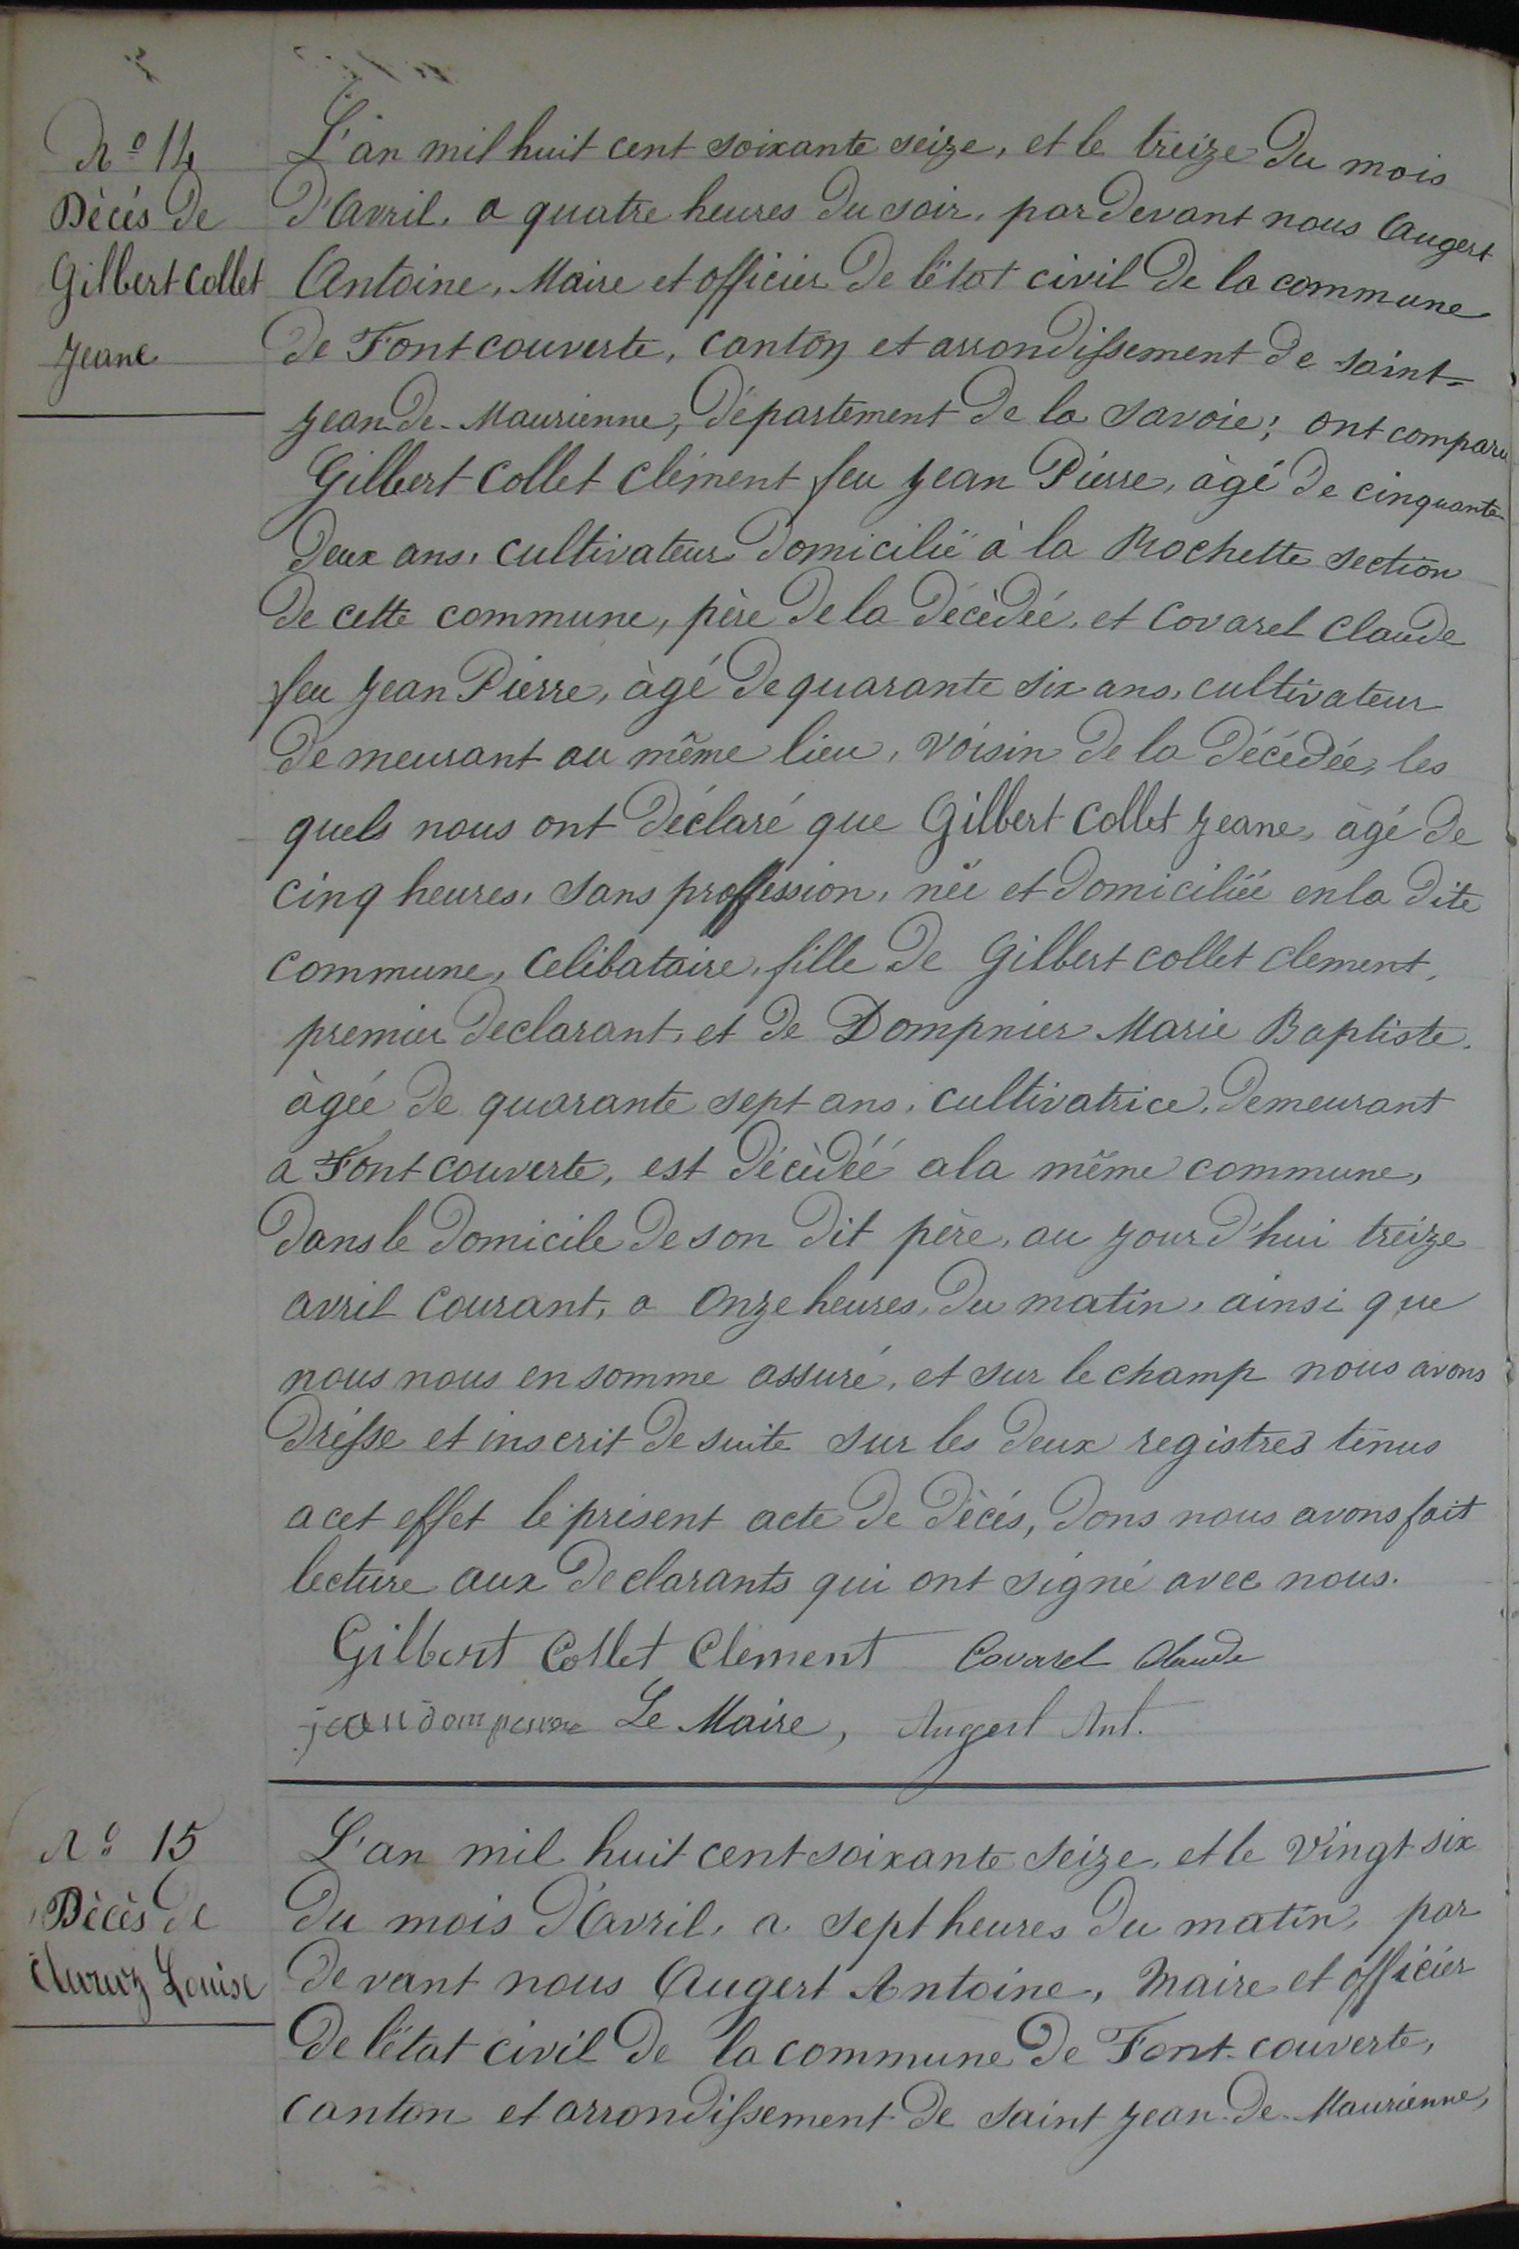 Nº 14
Décés de
Gilbert Collet
Jeane
L'an mil huit cent soixante seize, et le treize du mois
d'Avril, a quatre heures du soir, par devant nous Augert
Antoine, Maire et officier de l'état civil de la commune
de Fontcouverte, canton et arrondissement de saint-
Jean-de-Maurienne, département de la Savoie; ont comparu
Gilbert Collet Clément feu Jean Pierre, àgé de cinquante
deux ans, cultivateur domicilié à la Rochette section
de cette commune, père de la décèdée, et Covarel Claude
feu Jean Pierre, àgé de quarante six ans, cultivateur
demeurant au même lieu, voisin de la décédée, les
quels nous ont déclaré que Gilbert Collet Jeane, àgé de
cinq heures, sans proffession, née et domiciliée en la dite
commune, celibataire, fille de Gilbert collet clement,
premier declarant, et de Dompnier Marie Baptiste.
àgée de quarante sept ans, cultivatrice, demeurant
a Fontcouverte, est décèdéé a la même commune,
dans le domicile de son dit père, au jour d'hui treize
avril courant, a onze heures, du matin, ainsi que
nous nous en somme assuré, et sur le champ nous avons
drésse et inscrit de suite sur les deux registres tenus
a cet effet le présent acte de décés, dons nous avons fait
lecture aux declarants qui ont signé avec nous.
Gilbert Collet Clement Covarel Claude
jean Le Maire, Augert Ant.
Nº 15
Décès de
Claraz Louise
L'an mil huit cent soixante seize, et le vingt six
du mois d'Avril, a sept heures du matin, par
devant nous Augert Antoine, Maire et officier
de l'état civil de la commune de Font-couverte,
canton et arrondissement de saint Jean-de-Maurienne,